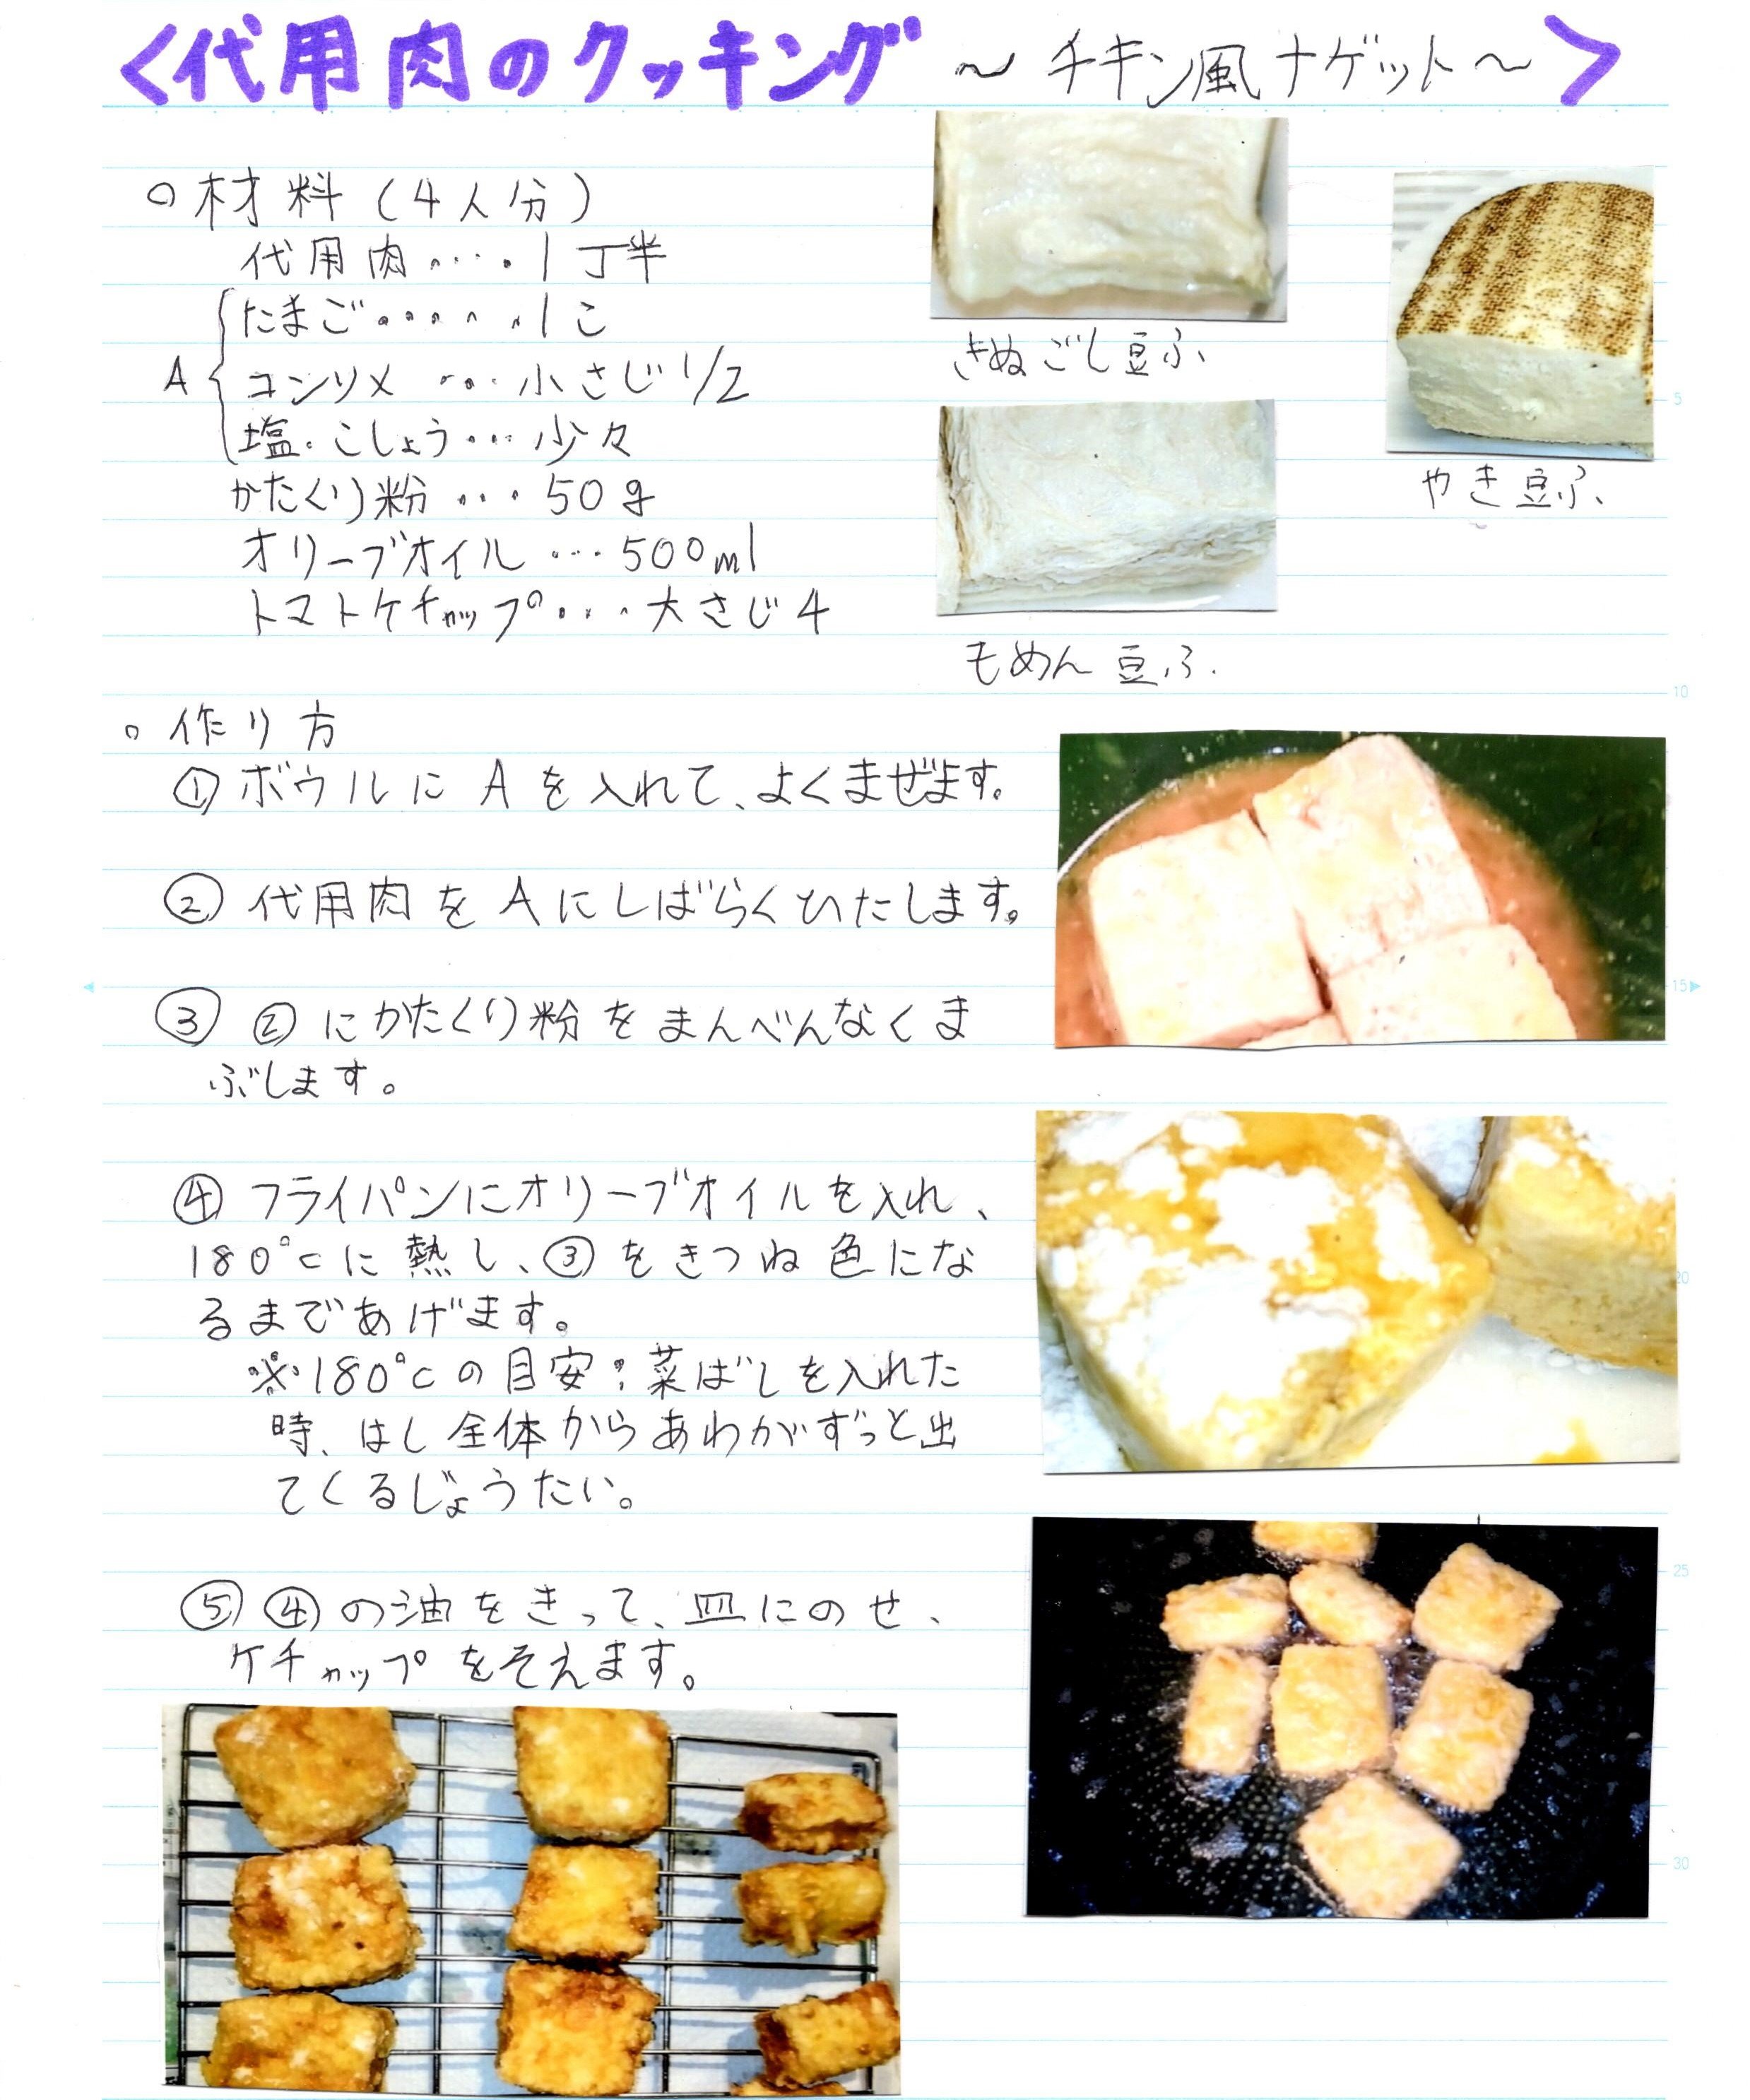 <代用肉のクッキング ～チキン風ナゲット～>
○材料(4人分)
代用肉・・・・1丁半
A
たまご・・・・・・1こ
コンソメ・・・小さじ1/2
塩・こしょう・・・少々
かたくり粉・・・50g
オリーブオイル・・・500ml
トマトケチャップ・・・大さじ4
きぬごし豆ふ
やき豆ふ
もめん豆ふ
○作り方
①ボウルにAを入れて、よくまぜます。
②代用肉をAにしばらくひたします。
③②にかたくり粉をまんべんなくま
ぶします。
④フライパンにオリーブオイルを入れ、
180℃に熱し、③をきつね色にな
るまであげます。
※180℃の目安:菜ばしを入れた
時、はし全体からあわがずっと出
てくるじょうたい。
⑤④の油をきって、皿にのせ、
ケチャップをそえます。
5
10
15
20
25
30